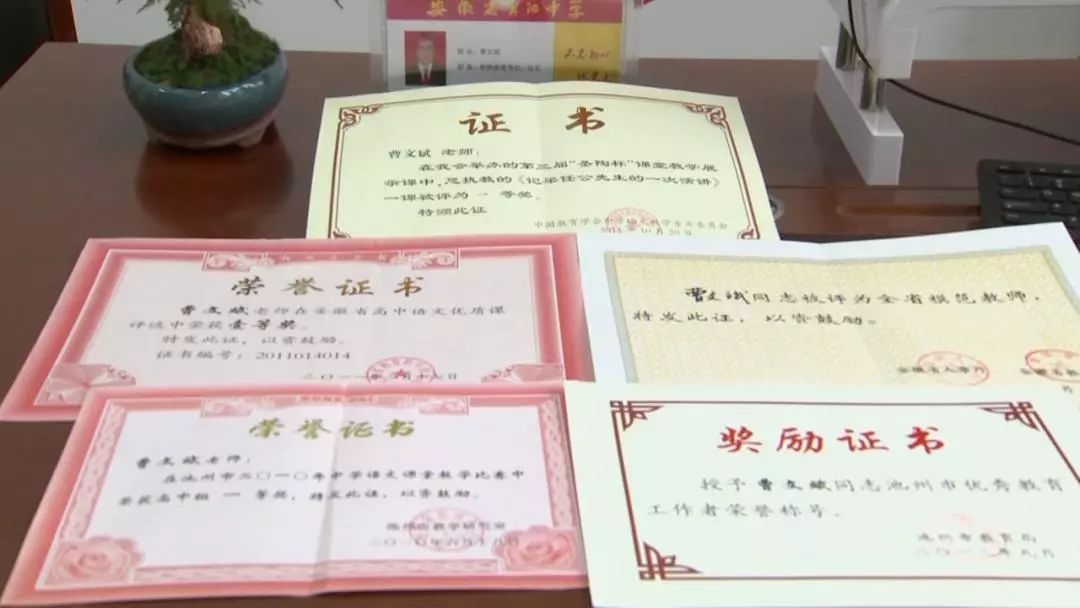 安徽省贵池中学
证书
曹文斌 老师：
在我会举办的第三届“圣陶杯”课堂教学展
示课中，您执教的《记梁任公先生的一次演讲》
一课被评为 一 等奖。
特颁此证
中国教育学会中学语文教学专业委员会
2011年10月20日
荣誉证书
曹文斌老师在安徽省高中语文优质课
评选中荣获壹等奖。
特发此证，以资鼓励。
证书编号：2011014014
荣誉证书
曹文斌老师：
在池州市二〇一〇年中学语文课堂教学比赛中
荣获高中组 一 等奖，特发此证，以资鼓励。
曹文斌同志被评为全省模范教师，
特发此证，以资鼓励。
奖励证书
授予曹文斌同志池州市优秀教育
工作者荣誉称号。
池州市教育局